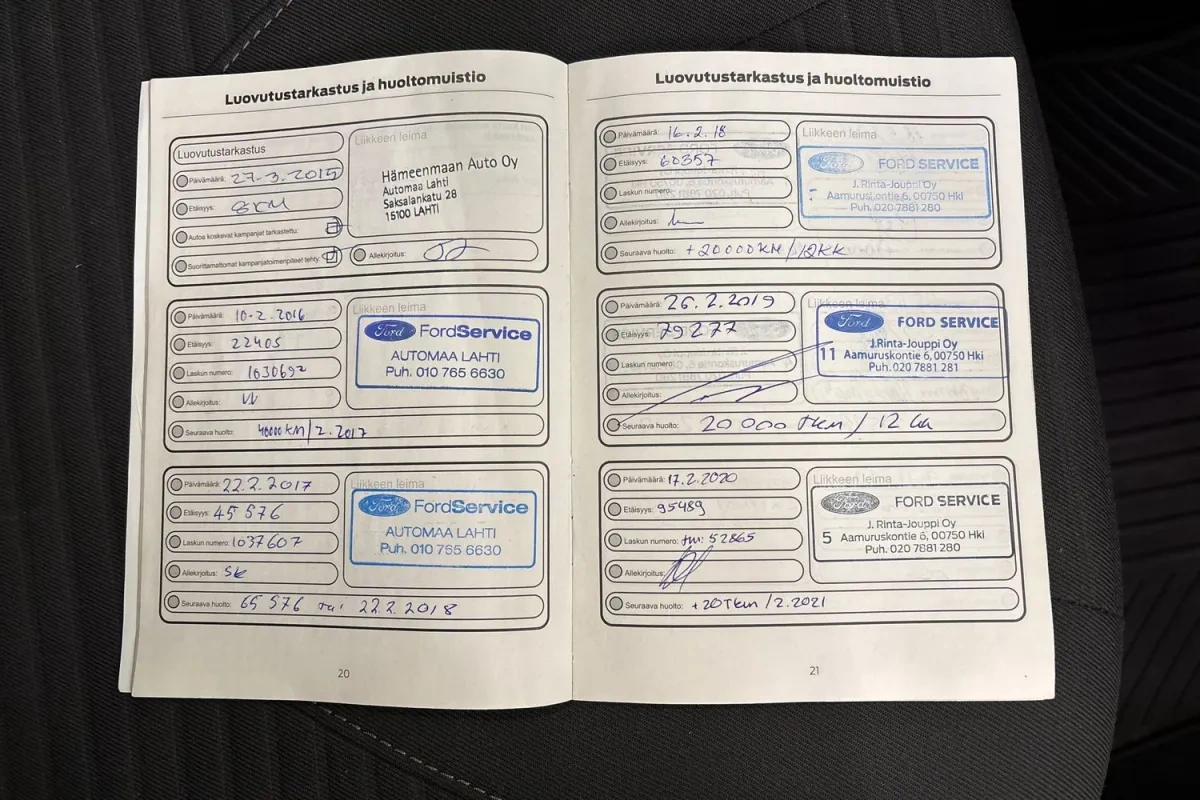 Luovutustarkastus ja huoltomuistio
Luovutustarkastus
Päivämäärä: 27-3.2015
Etäisyys: 8KM
Autoa koskevat kampanjat tarkastettu:
Suorittamattomat kampanjatoimenpiteet tehty:
Liikkeen leima
Hämeenmaan Auto Oy
Automaa Lahti
Saksalankatu 28
15100 LAHTI
Allekirjoitus:
Päivämäärä: 10-2.2016
Etäisyys: 22405
Laskun numero: 1030692
Allekirjoitus:
Seuraava huolto: 40000KM/2.2017
Liikkeen leima
Ford FordService
AUTOMAA LAHTI
Puh. 010 765 6630
Päivämäärä: 22.2.2017
Etäisyys: 45576
Laskun numero: 1037607
Allekirjoitus: SK
Seuraava huolto: 65 576 tai 22.2.2018
Liikkeen leima
Ford FordService
AUTOMAA LAHTI
Puh. 010 765 6630
20
Luovutustarkastus ja huoltomuistio
Päivämäärä: 16.2.18
Etäisyys: 60357
Laskun numero:
Allekirjoitus:
Seuraava huolto: +20000KM/12KK
Liikkeen leima
Ford FORD SERVICE
J. Rinta-Jouppi Oy
Aamuruskontie 6, 00750 Hki
Puh. 020 7881 280
Päivämäärä: 26.2.2019
Etäisyys: 79277
Laskun numero:
Allekirjoitus:
Seuraava huolto: 20 000 Tkm / 12 kk
Liikkeen leima
Ford FORD SERVICE
J.Rinta-Jouppi Oy
11 Aamuruskontie 6, 00750 Hki
Puh. 020 7881 281
Päivämäärä: 17.2.2020
Etäisyys: 95489
Laskun numero: 52865
Allekirjoitus:
Seuraava huolto: +20Tkm/2.2021
Liikkeen leima
Ford FORD SERVICE
J. Rinta-Jouppi Oy
5 Aamuruskontie 6, 00750 Hki
Puh. 020 7881 280
21